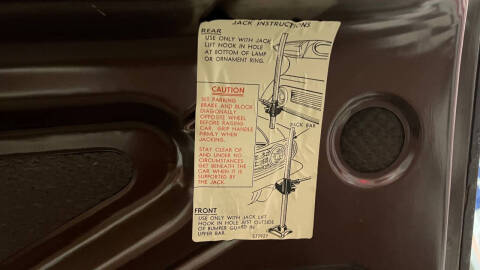 JACK INSTRUCTIONS
REAR
USE ONLY WITH JACK
LIFT HOOK IN HOLE
AT BOTTOM OF LAMP
OR ORNAMENT RING.
CAUTION
SET PARKING
BRAKE AND BLOCK
DIAGONALLY
OPPOSITE WHEEL
BEFORE RAISING
CAR. GRIP HANDLE
FIRMLY WHEN
JACKING.
STAY CLEAR OF
AND UNDER NO
CIRCUMSTANCES
GET BENEATH THE
CAR WHEN IT IS
SUPPORTED BY
THE JACK.
JACK BAR
FRONT
USE ONLY WITH JACK LIFT
HOOK IN HOLE JUST OUTSIDE
OF BUMPER GUARD IN
UPPER BAR.